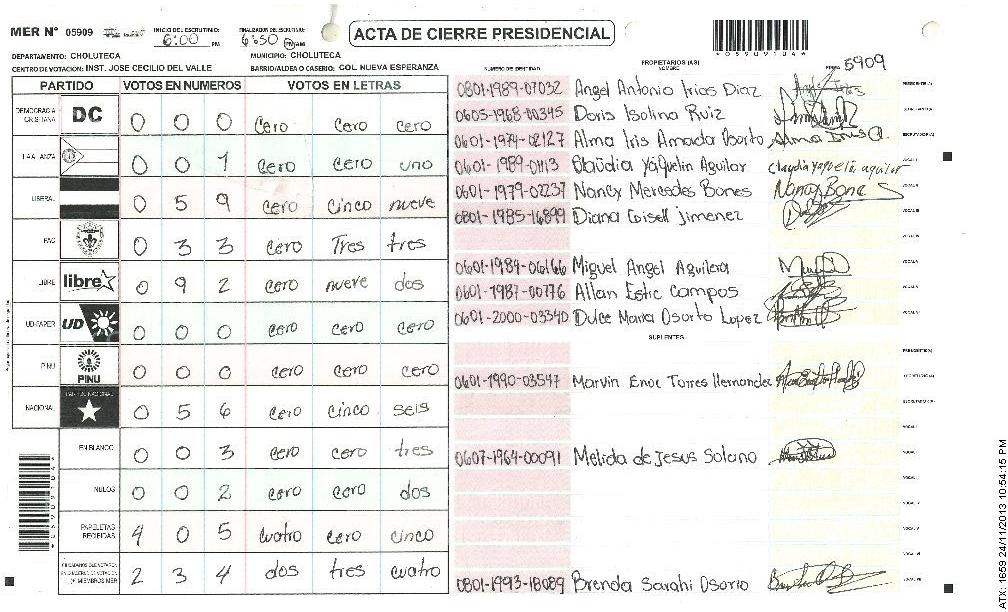 MER N° 05909 INICIO DEL ESCRUTINIO: 6:00 PM FINALIZACION DEL ESCRUTINIO: 6:50 PM AM ACTA DE CIERRE PRESIDENCIAL
5909
DEPARTAMENTO: CHOLUTECA MUNICIPIO: CHOLUTECA
CENTRO DE VOTACION: INST. JOSE CECILIO DEL VALLE BARRIO/ALDEA O CASERIO: COL. NUEVA ESPERANZA
PARTIDO VOTOS EN NUMEROS VOTOS EN LETRAS
DEMOCRACIA CRISTIANA DC 0 0 0 cero cero cero
LA ALIANZA 0 0 1 cero cero uno
LIBERAL 0 5 9 cero cinco nueve
PAC 0 3 3 cero Tres tres
LIBRE libre 0 9 2 cero nueve dos
UD-FAPER UD 0 0 0 cero cero cero
PINU PINU 0 0 0 cero cero cero
NACIONAL PARTIDO NACIONAL 0 5 6 cero cinco seis
EN BLANCO 0 0 3 cero cero tres
NULOS 0 0 2 cero cero dos
PAPELETAS RECIBIDAS 4 0 5 cuatro cero cinco
2 3 4 dos tres cuatro
NUMERO DE IDENTIDAD PROPIETARIOS (AS) NOMBRE FIRMA
0801-1989-07032 Angel Antonio Irias Diaz PRESIDENTE(A)
0605-1968-00345 Doris Isolina Ruiz SECRETARIO(A)
0601-1974-02127 Alma Iris Amada Osorto ESCRUTADOR(A)
0601-1989-01113 Claudia Yaquelin Aguilar Claudia yaquelin aguilar VOCAL I
0601-1979-02237 Nancy Mercedes Bones Nancy Bone VOCAL II
0801-1985-16899 Diana Goisell jimenez VOCAL III
0601-1989-06166 Miguel Angel Aguilera
0601-1987-00776 Allan Estic Campos
0601-2000-03340 Dulce Maria Osorto Lopez
SUPLENTES
PRESIDENTE(A)
0601-1990-03547 Marvin Enoc Torres Hernandez SECRETARIO(A)
0607-1964-00091 Melida de Jesus Solano
0801-1993-18089 Brenda Sarahi Osorio
ATX 1659 24/11/2013 10:54:15 PM